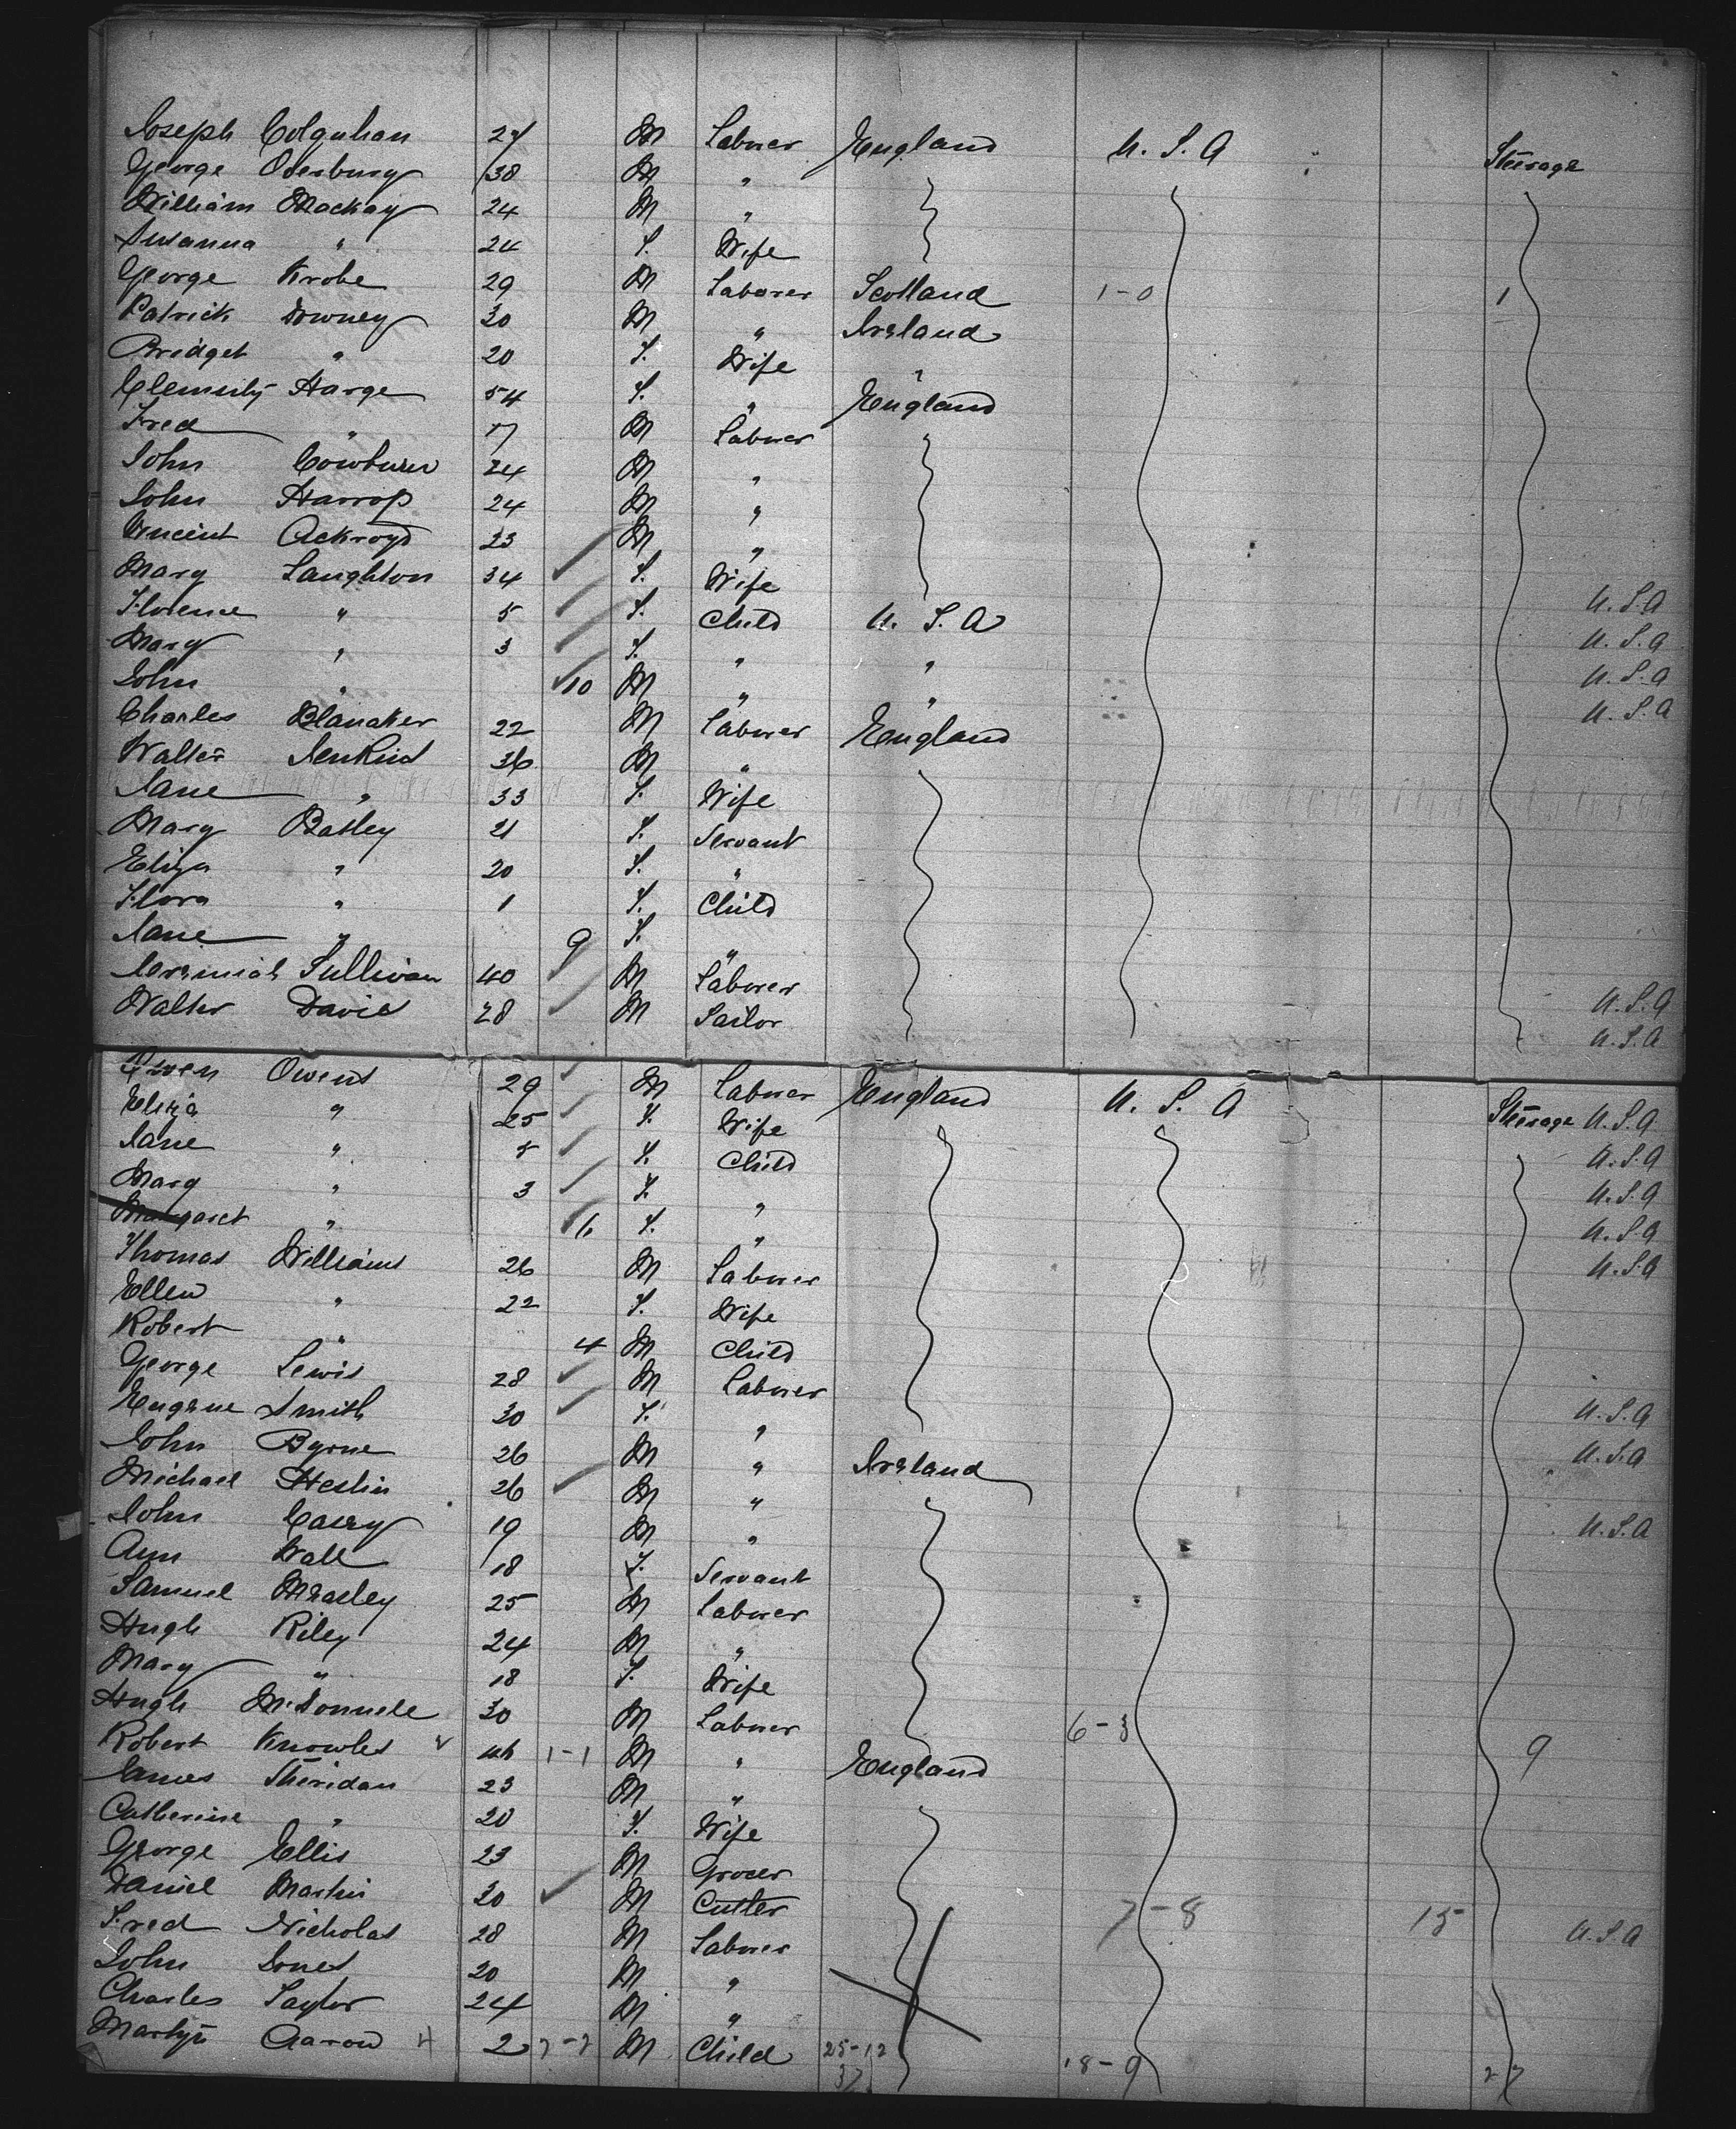 Joseph Colquhan 24 M Laborer England U. S. A Steerage
George Otesburg 38 M "
William Mackay 24 M "
Susanna " 24 F. Wife
George Krobe 29 M Laborer Scotland 1-0 1
Patrick Downey 30 M " Ireland
Bridget " 20 F. Wife "
Harge 54 F. " England
Fred " 17 M Laborer
John Cowburn 24 M "
John Harrop 24 M "
Vincent Ackroyd 23 M "
Mary Laughton 34 ✓ F. Wife U.S.A
Florence " 5 ✓ F. Child U. S. A U.S.A
Mary " 3 ✓ F. " " U.S.A
John " ✓ 10 M " " U.S.A
Charles Blanaker 22 M Laborer England
Walter Jenkins 36 M "
Jane " 33 F. Wife
Mary Batley 21 F. Servant
Eliza " 20 F. "
Flora " 1 F. Child
Jane " 9 F. "
Jeremiah Sullivan 40 ✓ M Laborer U.S.A
Walter Davies 28 ✓ M Sailor U.S.A
Owen Owens 29 ✓ M Laborer England U. S. A Steerage U.S.A
Eliza " 25 ✓ F. Wife U.S.A
Jane " 5 ✓ F. Child U.S.A
Mary " 3 ✓ F. " U.S.A
Margaret " ✓ 6 F. " U.S.A
Thomas Williams 26 M Laborer
Ellen " 22 F. Wife
Robert " 4 M Child
George Lewis 28 ✓ M Laborer U.S.A
Eugene Smith 30 ✓ F. " U.S.A
John Byrne 26 M " Ireland
Michael Heslin 26 ✓ M " U.S.A
John Casey 19 M "
Ann Wall 18 F. Servant
Samuel 25 M Laborer
Hugh Riley 24 M "
Mary " 18 F. Wife
Hugh McDonnell 30 M Laborer 6-3
Robert Knowles 46 1-1 M " England 9
James Sheridan 23 M "
Catherine " 20 F. Wife
George Ellis 23 M Grocer
Daniel Martin 30 ✓ M Cutter 7-8 15 U.S.A
Fred Nicholas 28 M Laborer
John Jones 20 M "
Charles Taylor 24 M "
Martyn Aarow 4 2 7-2 M Child 25-12 18-9 27
37